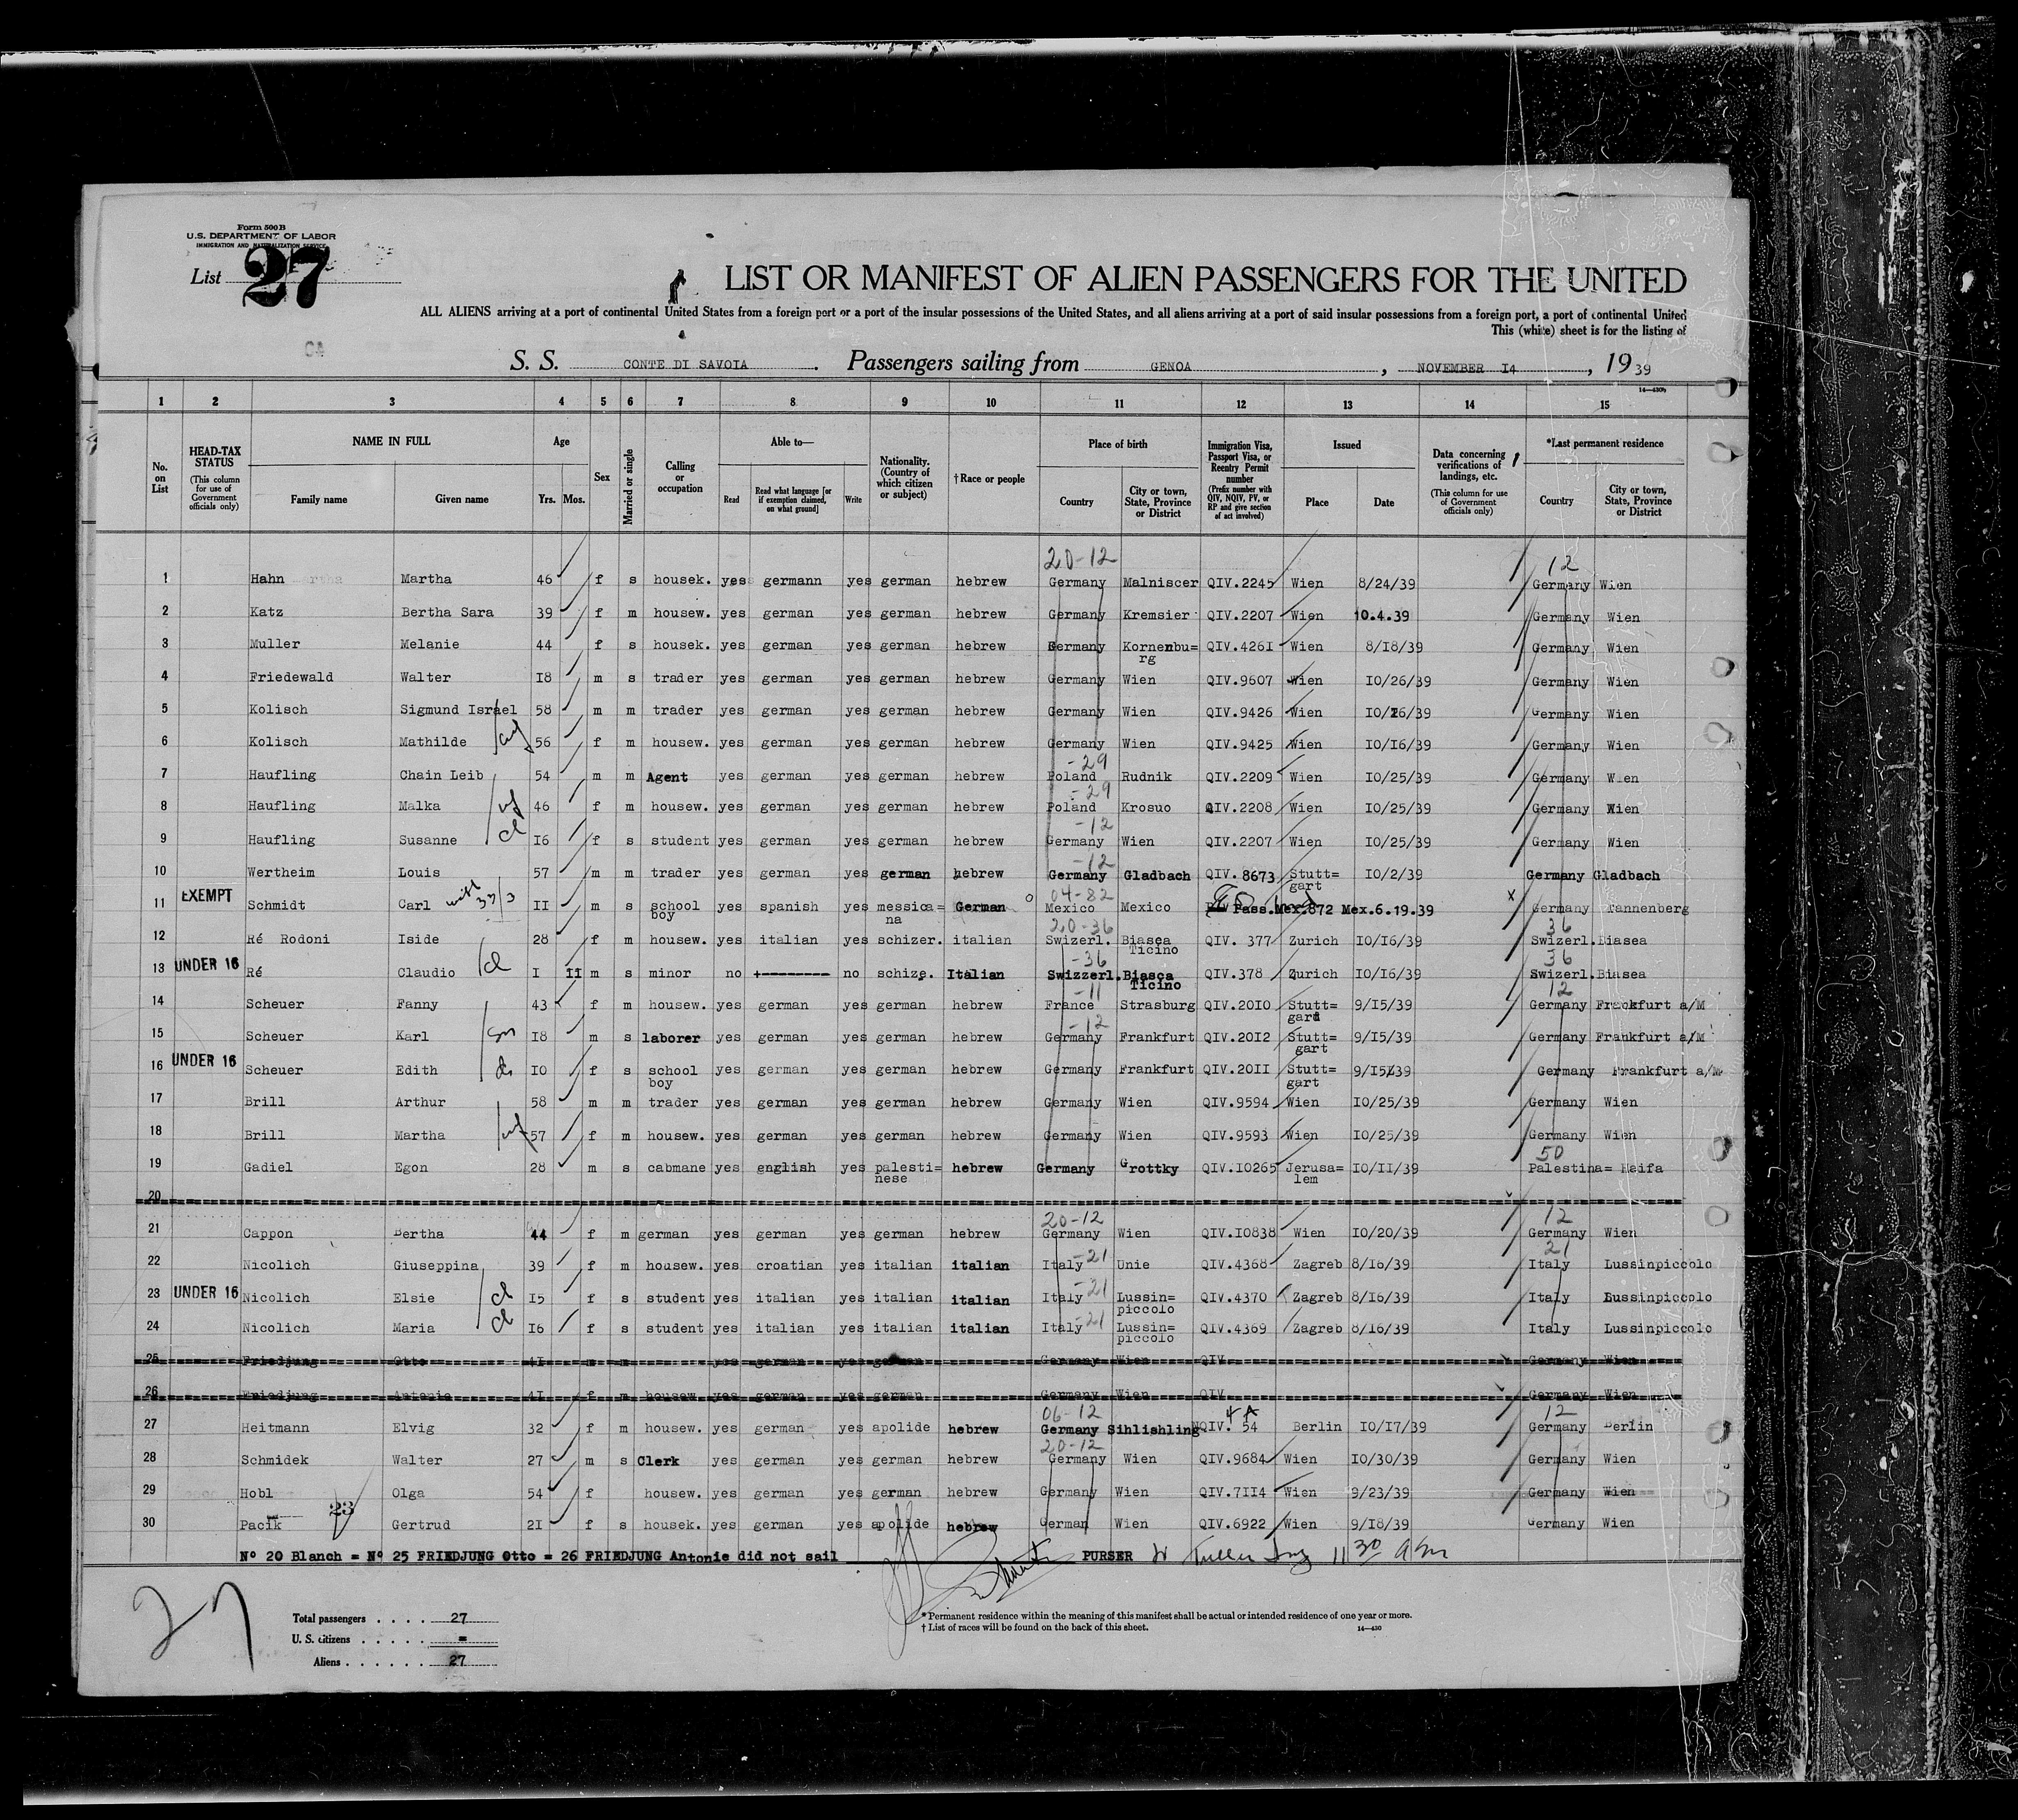 Form 500B
U.S. DEPARTMENT OF LABOR
IMMIGRATION AND NATURALIZATION SERVICE
List 27
LIST OR MANIFEST OF ALIEN PASSENGERS FOR THE UNITED
ALL ALIENS arriving at a port of continental United States from a foreign port or a port of the insular possessions of the United States, and all aliens arriving at a port of said insular possessions from a foreign port, a port of continental United
This (white) sheet is for the listing of
S. S. CONTE DI SAVOIA. Passengers sailing from GENOA, NOVEMBER I4, 1939
14—430b
1 2 3 4 5 6 7 8 9 10 11 12 13 14 15
No. on List
HEAD-TAX STATUS (This column for use of Government officials only)
NAME IN FULL Family name Given name
Age Yrs. Mos.
Sex
Married or single
Calling or occupation
Able to— Read Read what language [or if exemption claimed, on what ground] Write
Nationality. (Country of which citizen or subject)
†Race or people
Place of birth Country City or town, State, Province or District
Immigration Visa, Passport Visa, or Reentry Permit number (Prefix number with QIV, NQIV, PV, or RP and give section of act involved)
Issued Place Date
Data concerning verifications of landings, etc. (This column for use of Government officials only)
*Last permanent residence Country City or town, State, Province or District
20-12 12
1 Hahn Martha 46 f s housek. yes germann yes german hebrew Germany Malniscer QIV.2245 Wien 8/24/39 Germany Wien
2 Katz Bertha Sara 39 f m housew. yes german yes german hebrew Germany Kremsier QIV.2207 Wien 10.4.39 Germany Wien
3 Muller Melanie 44 f s housek. yes german yes german hebrew Germany Kornenbu= rg QIV.426I Wien 8/I8/39 Germany Wien
4 Friedewald Walter I8 m s trader yes german yes german hebrew Germany Wien QIV.9607 Wien I0/26/39 Germany Wien
5 Kolisch Sigmund Israel 58 m m trader yes german yes german hebrew Germany Wien QIV.9426 Wien I0/26/39 Germany Wien
6 Kolisch Mathilde wf 56 f m housew. yes german yes german hebrew Germany Wien QIV.9425 Wien I0/I6/39 Germany Wien
-29
7 Haufling Chain Leib 54 m m Agent yes german yes german hebrew Poland Rudnik QIV.2209 Wien I0/25/39 Germany Wien
-29
8 Haufling Malka wf 46 f m housew. yes german yes german hebrew Poland Krosuo QIV.2208 Wien I0/25/39 Germany Wien
-12
9 Haufling Susanne cl I6 f s student yes german yes german hebrew Germany Wien QIV.2207 Wien I0/25/39 Germany Wien
-12
10 Wertheim Louis 57 m m trader yes german yes german hebrew Germany Gladbach QIV.8673 Stutt= gart I0/2/39 Germany Gladbach
04-82
11 EXEMPT Schmidt Carl with II m s school boy yes spanish yes messica= na German Mexico Mexico Pass.Mex.872 Mex.6.19.39 x Germany Tannenberg
20-36 36
12 Ré Rodoni Iside 28 f m housew. yes italian yes schizer. italian Swizerl. Biasea Ticino QIV. 377 Zurich I0/I6/39 Swizerl. Biasea
-36 36
13 UNDER 16 Ré Claudio cl I II m s minor no +--------- no schize. Italian Swizzerl. Biasca Ticino QIV.378 Zurich I0/I6/39 Swizerl. Biasea
-11 12
14 Scheuer Fanny 43 f m housew. yes german yes german hebrew France Strasburg QIV.20I0 Stutt= gart 9/I5/39 Germany Frankfurt a/M
-12
15 Scheuer Karl sn I8 m s laborer yes german yes german hebrew Germany Frankfurt QIV.20I2 Stutt= gart 9/I5/39 Germany Frankfurt a/M
16 UNDER 16 Scheuer Edith I0 f s school boy yes german yes german hebrew Germany Frankfurt QIV.20II Stutt= gart 9/I5/39 Germany Frankfurt a/M
17 Brill Arthur 58 m m trader yes german yes german hebrew Germany Wien QIV.9594 Wien I0/25/39 Germany Wien
18 Brill Martha wf 57 f m housew. yes german yes german hebrew Germany Wien QIV.9593 Wien I0/25/39 Germany Wien
50
19 Gadiel Egon 28 m s cabmane yes english yes palesti= nese hebrew Germany Grottky QIV.I0265 Jerusa= lem I0/II/39 Palestina= Heifa
20
20-12 12
21 Cappon Bertha 44 f m german yes german yes german hebrew Germany Wien QIV.I0838 Wien I0/20/39 Germany Wien
21
22 Nicolich Giuseppina 39 f m housew. yes croatian yes italian italian Italy -21 Unie QIV.4368 Zagreb 8/I6/39 Italy Lussinpiccolo
23 UNDER 16 Nicolich Elsie cl I5 f s student yes italian yes italian italian Italy -21 Lussin= piccolo QIV.4370 Zagreb 8/I6/39 Italy Lussinpiccolo
24 Nicolich Maria cl I6 f s student yes italian yes italian italian Italy -21 Lussin= piccolo QIV.4369 Zagreb 8/I6/39 Italy Lussinpiccolo
25 Friedjung Otto 4I m m yes german yes german Germany Wien QIV Germany Wien
26 Friedjung Antonie 4I f m housew. yes german yes german Germany Wien QIV Germany Wien
06-12 4A 12
27 Heitmann Elvig 32 f m housew. yes german yes apolide hebrew Germany Sihlishling NQIV. 54 Berlin I0/I7/39 Germany Berlin
20-12
28 Schmidek Walter 27 m s Clerk yes german yes german hebrew Germany Wien QIV.9684 Wien I0/30/39 Germany Wien
29 Hobl Olga 54 f housew. yes german yes german hebrew Germany Wien QIV.7II4 Wien 9/23/39 Germany Wien
23
30 Pacik Gertrud 2I f s housek. yes german yes apolide hebrew German Wien QIV.6922 Wien 9/I8/39 Germany Wien
Nº 20 Blanch = Nº 25 FRIEDJUNG Otto = 26 FRIEDJUNG Antonie did not sail PURSER 11 30 am
27
Total passengers . . . . 27
U. S. citizens . . . . . =
Aliens . . . . . . 27
* Permanent residence within the meaning of this manifest shall be actual or intended residence of one year or more.
† List of races will be found on the back of this sheet. 14—430